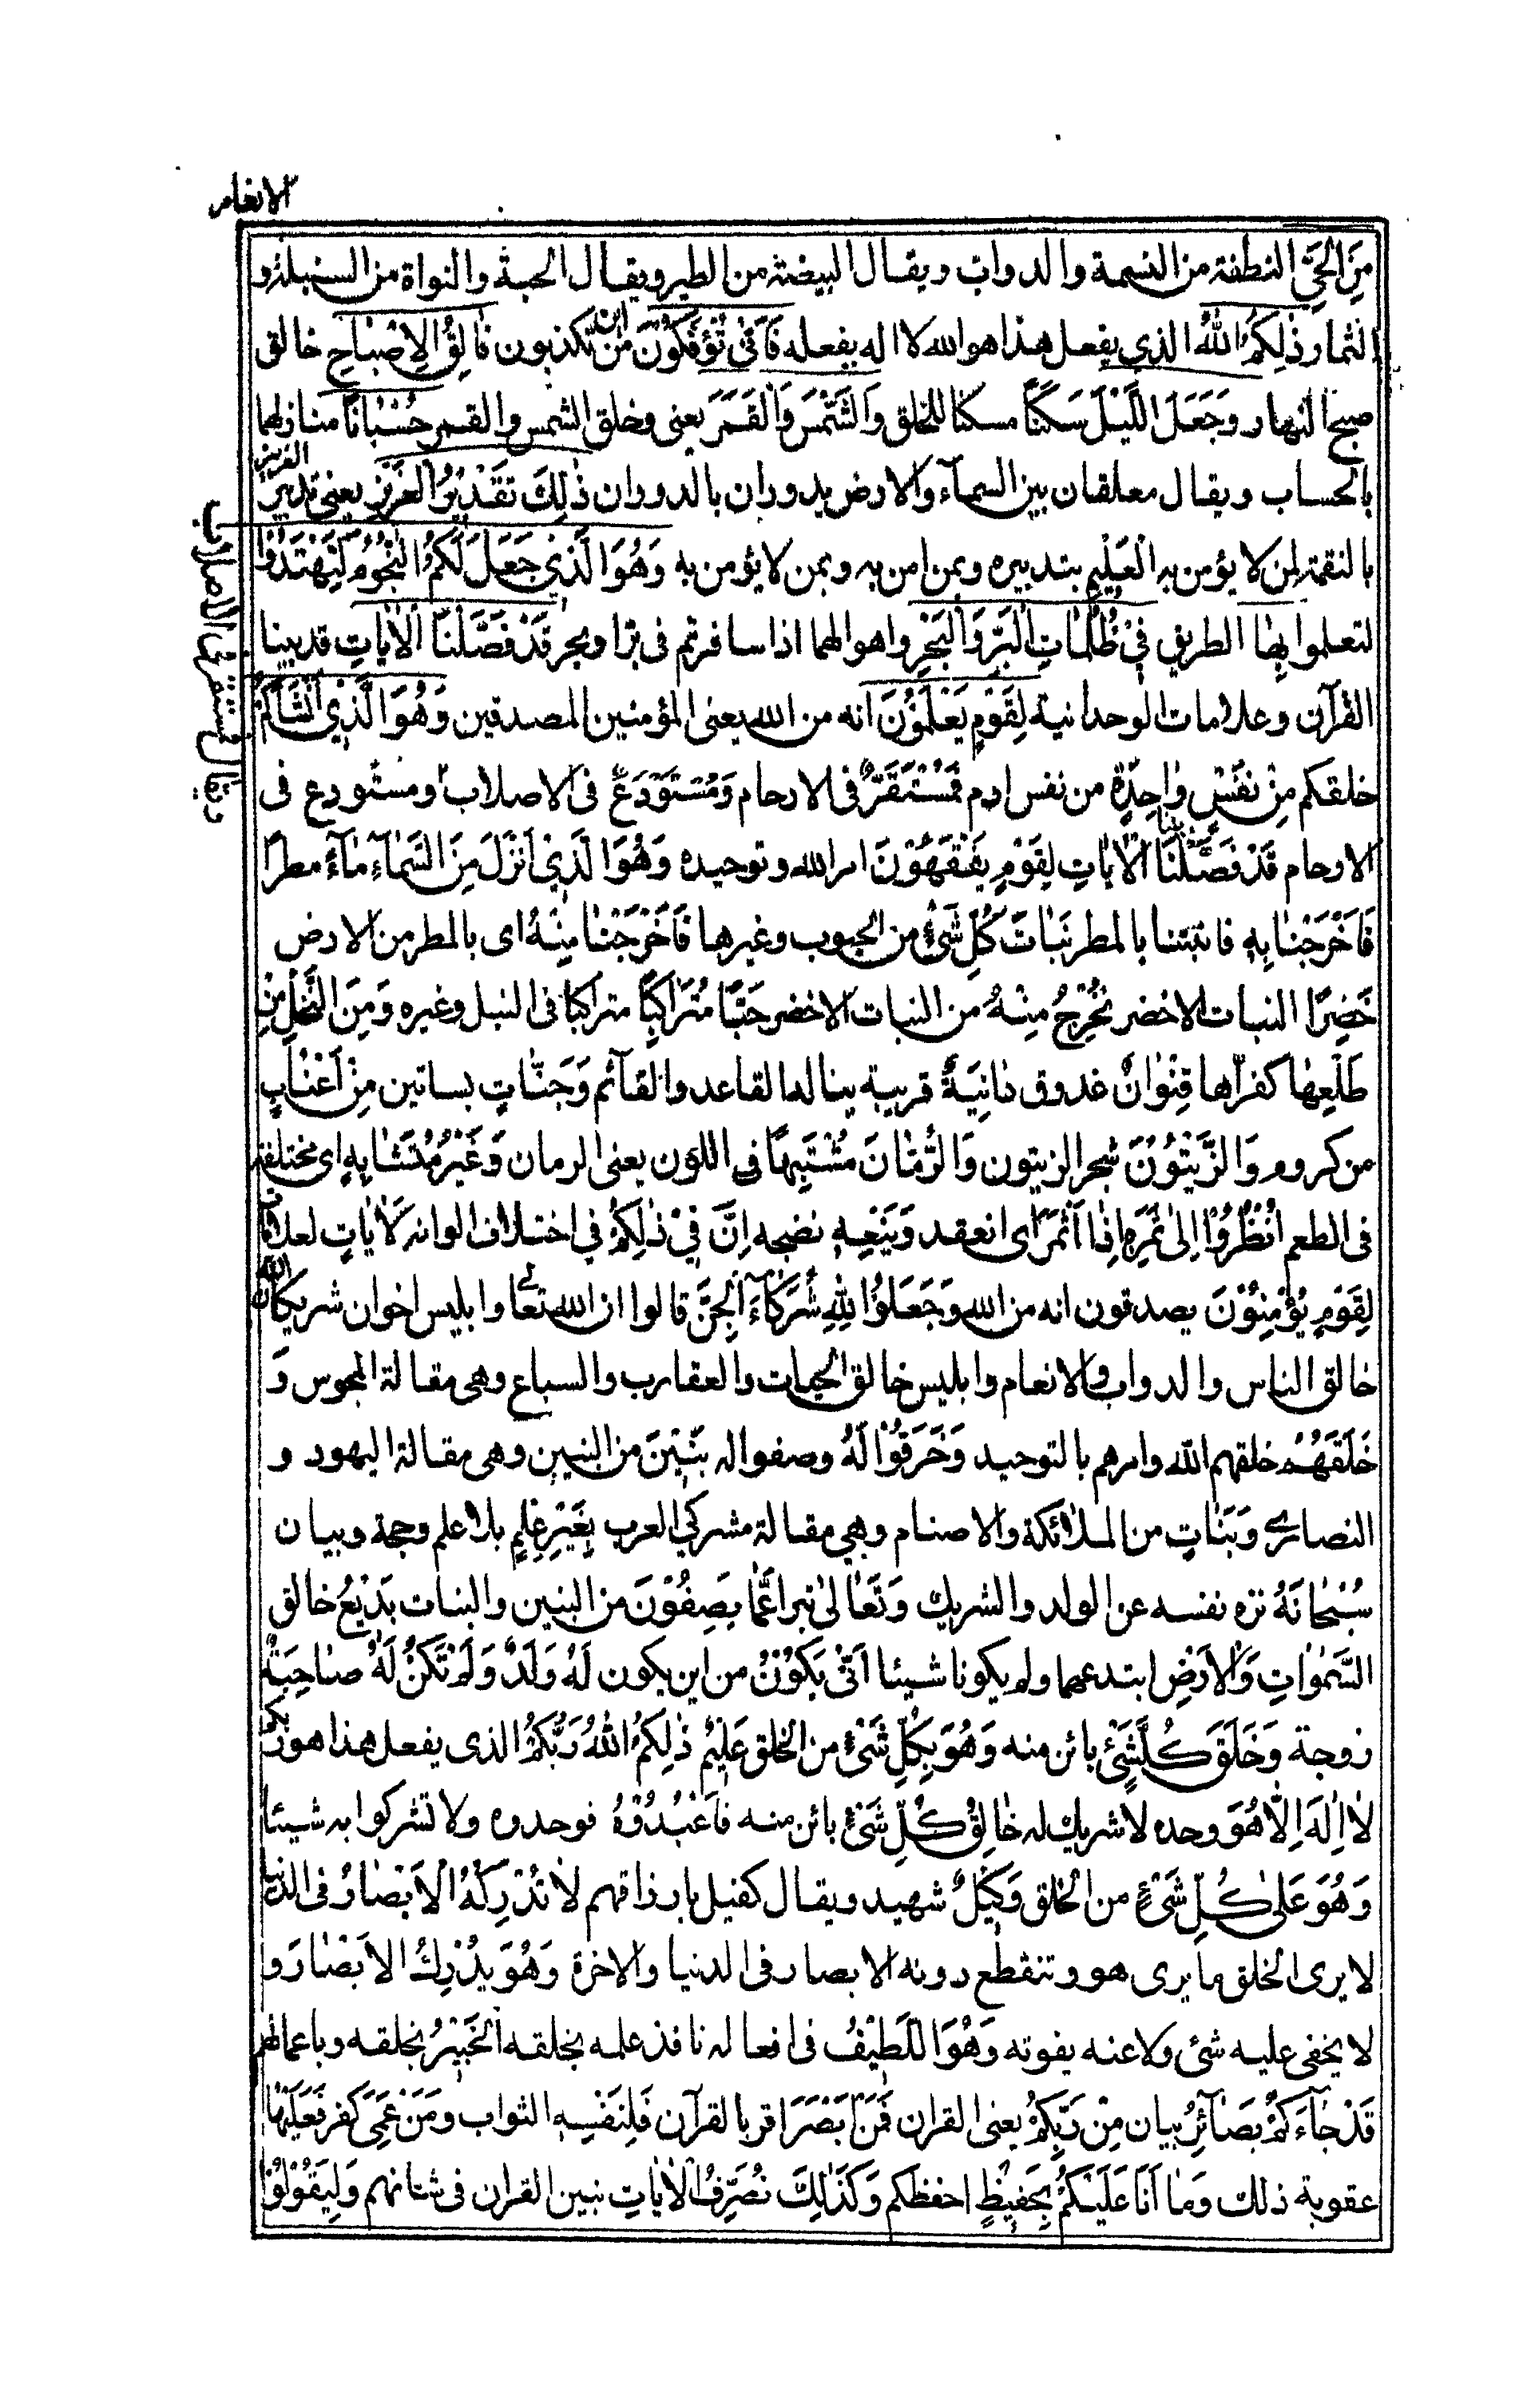 الانعام
مِنَ الْحَيِّ النطفة من النسمة والدواب ويقال البيضة من الطير ويقال الحبة والنواة من السنبلة و
الثمار ذٰلِكُمُ اللّٰهُ الذي يفعل هذا هو الله لا اله يفعله فَاَنّٰى تُؤْفَكُوْنَ من اين تكذبون فَالِقُ الْاِصْبَاحِ خالق
صبح النهار وَجَعَلَ اللَّيْلَ سَكَنًا مسكنا للخلق وَالشَّمْسَ وَالْقَمَرَ يعنى وخلق الشمس والقمر حُسْبَانًا منازلهما
بالحساب ويقال معلقان بين السمآء والارض يدوران بالدوران ذٰلِكَ تَقْدِيْرُ الْعَزِيْزِ يعنى تدبير العزيز
بالنقمة لمن لا يؤمن به الْعَلِيْمِ بتدبيره وبمن امن به وبمن لا يؤمن به وَهُوَ الَّذِيْ جَعَلَ لَكُمُ النُّجُوْمَ لِتَهْتَدُوْا
لتعلموا بِهَا الطريق فِيْ ظُلُمَاتِ الْبَرِّ وَالْبَحْرِ واهوالهما اذا سافرتم فى بر او بحر قَدْ فَصَّلْنَا الْاٰيَاتِ قد بينا
القرآن وعلامات الوحدانية لِقَوْمٍ يَعْلَمُوْنَ انه من الله يعنى المؤمنين المصدقين وَهُوَ الَّذِيْ اَنْشَاَكُمْ
خلقكم مِنْ نَفْسٍ وَاحِدَةٍ من نفس ادم فَمُسْتَقَرٌّ فى الارحام وَمُسْتَوْدَعٌ فى الاصلاب ومستودع فى
ويقال فمستقر فى الاصلاب
الارحام قَدْ فَصَّلْنَا بينا الْاٰيَاتِ لِقَوْمٍ يَفْقَهُوْنَ امر الله وتوحيده وَهُوَ الَّذِيْ اَنْزَلَ مِنَ السَّمَاءِ مَآءً مطرا
فَاَخْرَجْنَا بِهِ فانبتنا بالمطر نَبَاتَ كُلِّ شَيْءٍ من الحبوب وغيرها فَاَخْرَجْنَا مِنْهُ اى بالمطر من الارض
خَضِرًا النبات الاخضر نُخْرِجُ مِنْهُ من النبات الاخضر حَبًّا مُتَرَاكِبًا متراكبا فى السنبل وغيره وَمِنَ النَّخْلِ مِنْ
طَلْعِهَا كفراها قِنْوَانٌ عذوق دَانِيَةٌ قريبة ينالها القاعد والقآئم وَجَنّٰاتٍ بساتين مِنْ اَعْنَابٍ
من كروم وَالزَّيْتُوْنَ شجر الزيتون وَالرُّمَّانَ مُشْتَبِهًا فى اللون يعنى الرمان وَغَيْرَ مُتَشَابِهٍ اى مختلفة
فى الطعم اُنْظُرُوْا اِلٰى ثَمَرِهِ اِذَا اَثْمَرَ اى انعقد وَيَنْعِهِ نضجه اِنَّ فِيْ ذٰلِكُمْ فى اختلاف الوانه لَاٰيَاتٍ لعلامات
لِقَوْمٍ يُؤْمِنُوْنَ يصدقون انه من الله وَجَعَلُوْا لِلّٰهِ شُرَكَاءَ الْجِنَّ قالوا ان الله تعالى وابليس اخوان شريكان الله
خالق الناس والدواب والانعام وابليس خالق الحيات والعقارب والسباع وهى مقالة المجوس وَ
خَلَقَهُمْ خلقهم الله وامرهم بالتوحيد وَخَرَقُوْا لَهُ وصفوا له بَنِيْنَ من البنين وهى مقالة اليهود و
النصارى وَبَنَاتٍ من الملائكة والاصنام وهى مقالة مشركى العرب بِغَيْرِ عِلْمٍ بلا علم وحجة وبيان
سُبْحَانَهُ نزه نفسه عن الولد والشريك وَتَعَالٰى تبرأ عَمَّا يَصِفُوْنَ من البنين والبنات بَدِيْعُ خالق
السَّمٰوَاتِ وَالْاَرْضِ ابتدعهما ولم يكونا شيئا اَنّٰى يَكُوْنُ من اين يكون لَهُ وَلَدٌ وَلَمْ تَكُنْ لَهُ صَاحِبَةٌ
زوجة وَخَلَقَ كُلَّ شَيْءٍ بائن منه وَهُوَ بِكُلِّ شَيْءٍ من الخلق عَلِيْمٌ ذٰلِكُمُ اللّٰهُ رَبُّكُمْ الذى يفعل هذا هو ربكم
لَا اِلٰهَ اِلَّا هُوَ وحده لا شريك له خَالِقُ كُلِّ شَيْءٍ بائن منه فَاعْبُدُوْهُ فوحدوه ولا تشركوا به شيئا
وَهُوَ عَلٰى كُلِّ شَيْءٍ من الخلق وَكِيْلٌ شهيد ويقال كفيل بارزاقهم لَا تُدْرِكُهُ الْاَبْصَارُ فى الدنيا
لا يرى الخلق ما يرى هو وتنقطع دونه الابصار فى الدنيا والاخرة وَهُوَ يُدْرِكُ الْاَبْصَارَ و
لا يخفى عليه شئ ولا عنه يفوته وَهُوَ اللَّطِيْفُ فى افعاله نافذ علمه بخلقه الْخَبِيْرُ بخلقه وباعمالهم
قَدْ جَآءَكُمْ بَصَآئِرُ بيان مِنْ رَّبِّكُمْ يعنى القران فَمَنْ اَبْصَرَ اقر بالقرآن فَلِنَفْسِهِ الثواب وَمَنْ عَمِيَ كفر فَعَلَيْهَا
عقوبة ذلك وَمَا اَنَا عَلَيْكُمْ بِحَفِيْظٍ احفظكم وَكَذٰلِكَ نُصَرِّفُ الْاٰيَاتِ نبين القران فى شانهم وَلِيَقُوْلُوْا